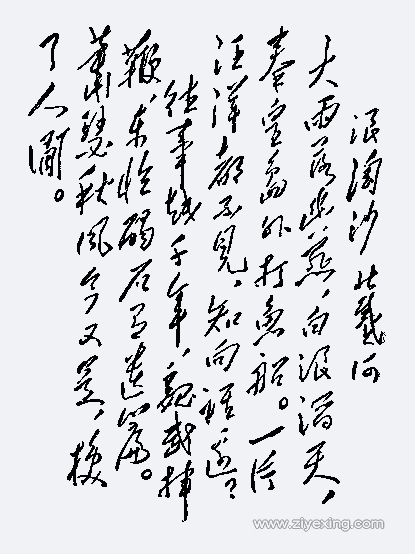 浪淘沙 北戴河
大雨落幽燕，白浪滔天，
秦皇島外打魚船。一片
汪洋都不見，知向誰邊？
往事越千年，魏武揮
鞭，東臨碣石有遺篇。
蕭瑟秋風今又是，換
了人間。
www.ziyexing.com